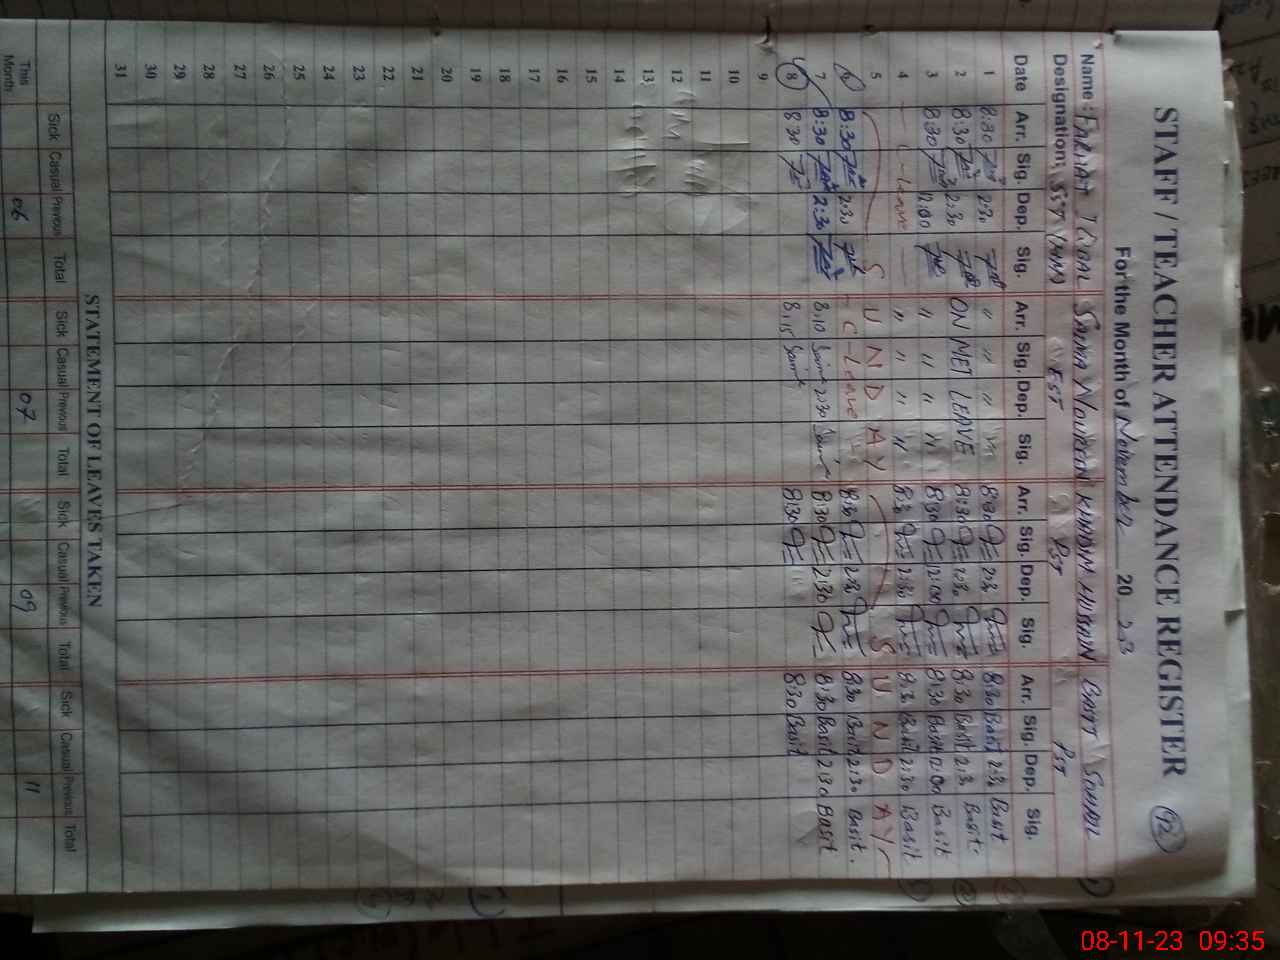 STAFF / TEACHER ATTENDANCE REGISTER 92
For the Month of November 2023
Name: FARHAT IQBAL SAIMA NOUREEN KHADIM HUSSAIN BASIT SOHAIL
Designation: SST EST PST PST
Date Arr. Sig. Dep. Sig. Arr. Sig. Dep. Sig. Arr. Sig. Dep. Sig. Arr. Sig. Dep. Sig.
1 8:30 2:30 " " " " 8:30 2:30 8:30 Basit 2:30 Basit
2 8:30 2:30 ON MET LEAVE 8:30 2:30 8:30 Basit 2:30 Basit.
3 8:30 12:00 " " " " 8:30 12:00 8:30 Basit 12:00 Basit
4 - Leave " " " " 8:30 2:30 8:30 Basit 2:30 Basit
5 S U N D A Y S U N D A Y
6 8:30 2:30 C-Leave 8:30 2:30 8:30 Basit 2:30 Basit.
7 8:30 2:30 8:10 Saima 2:30 Saima 8:30 2:30 8:30 Basit 2:30 Basit
8 8:30 8:15 Saima 8:30 8:30 Basit
9
10
11
12
13
14
15
16
17
18
19
20
21
22
23
24
25
26
27
28
29
30
31
STATEMENT OF LEAVES TAKEN
Sick Casual Previous Total Sick Casual Previous Total Sick Casual Previous Total Sick Casual Previous Total
This Month 06 07 09 11
08-11-23 09:35